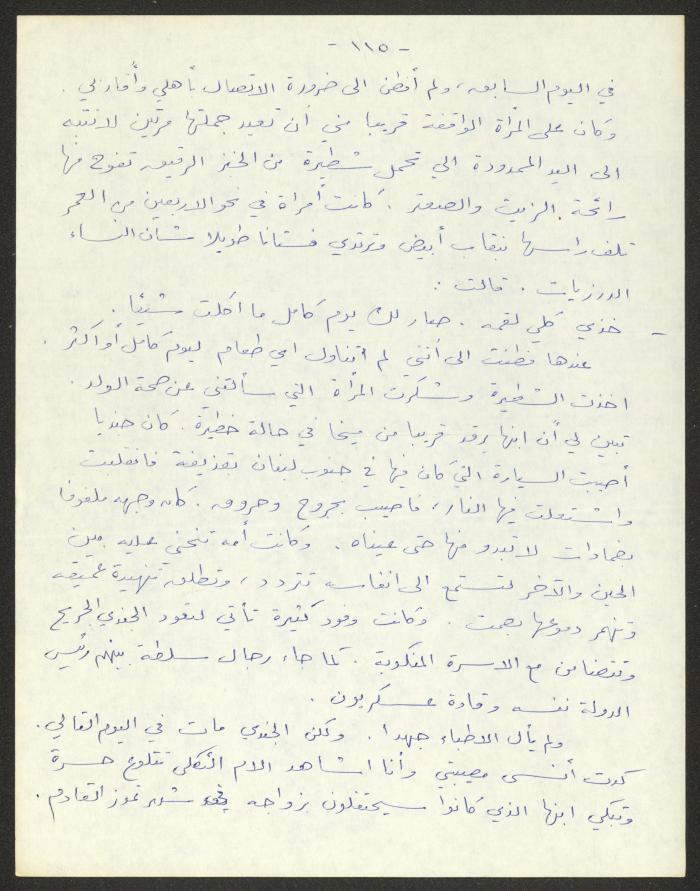 - ١١٥ -
في اليوم السابق، ولم أفطن الى ضرورة الاتصال بأهلي وأقاربي .
وكان على المرأة الواقفة قريبا مني أن تعيد جملتها مرتين لانتبه
الى اليد الممدودة التي تحمل شطيرة من الخبز الرقيق تفوح منها
رائحة الزيت والصعتر . كانت أمرأة في نحو الاربعين من العمر
تلف راسها بنقاب أبيض وترتدي فستانا طويلا شأن النساء
الدرزيات . قالت :
- خذي كلي لقمة . صار لك يوم كامل ما اكلت شيئا .
عندها فطنت الى أنني لم اتناول اي طعام ليوم كامل أو اكثر .
اخذت الشطيرة وشكرت المرأة التي سألتني عن صحة الولد .
تبين لي أن ابنها يرقد قريبا من ميخا في حالة خطيرة . كان جنديا
أصيبت السيارة التي كان فيها في جنوب لبنان بقذيفة فانقلبت
واشتعلت فيها النار، فاصيب بجروح وحروق . كان وجهه ملفوفا
بضمادات لا تبدو منها حتى عيناه . وكانت أمه تنحني عليه بين
الحين والآخر لتستمع الى انفاسه تتردد ، وتطلق تنهيدة عميقة
وتنهمر دموعها بصمت . وكانت وفود كثيرة تأتي لتعود الجندي الجريح
وتتضامن مع الاسرة المنكوبة . كما جاء رجال سلطة بينهم رئيس
الدولة نفسه وقادة عسكريون .
ولم يأل الاطباء جهدا . ولكن الجندي مات في اليوم التالي .
كدت أنسى مصيبتي وأنا اشاهد الام الثكلى تتلوع حسرة
وتبكي ابنها الذي كانوا سيحتفلون بزواجه في شهر تموز القادم .